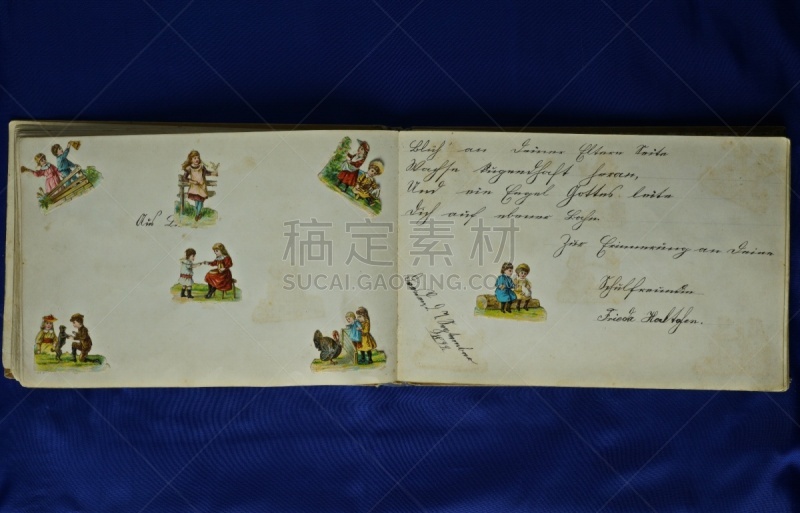 Aus
Blüh' an Deiner Eltern Seite
Wachse tugendhaft heran,
Und ein Engel Gottes leite
Dich auf ebener Bahn.
Zur Erinnerung an Deine
Schulfreundin
Frieda
September
稿定素材
SUCAI.GAODING.COM